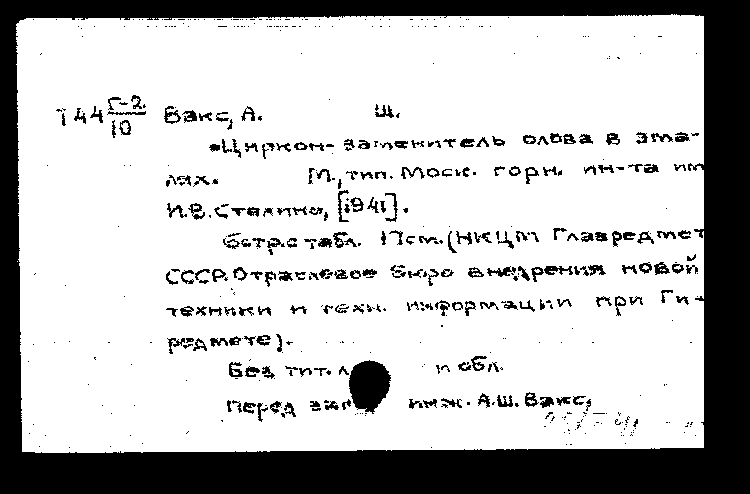 Т44 Г-2/10 Вакс, А. Ш.
Циркон-заменитель олова в эма-
лях. М., тип. Моск. горн. ин-та им
И.В. Сталина, [1941].
6стр.с табл. 17см. (НКЦМ Главредмет
СССР. Отраслевое бюро внедрения новой
техники и техн. информации при Ги-
редмете).
Без тит. л и обл.
Перед инж. А.Ш. Вакс,